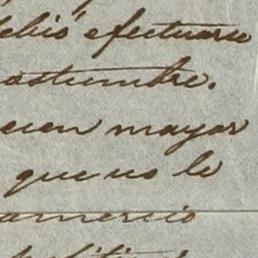 debió efectuarse
costumbre.
ecen mayor
que no le
comercio